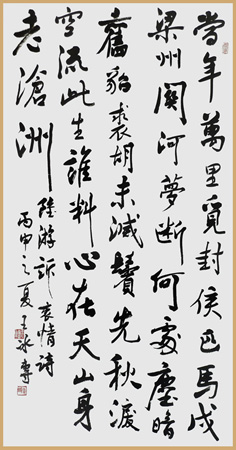 當年萬里覓封侯匹馬戍
梁州關河夢斷何處塵暗
舊貂裘胡未滅鬢先秋淚
空流此生誰料心在天山身
老滄洲
陸游訴衷情詩
丙申之夏王冰